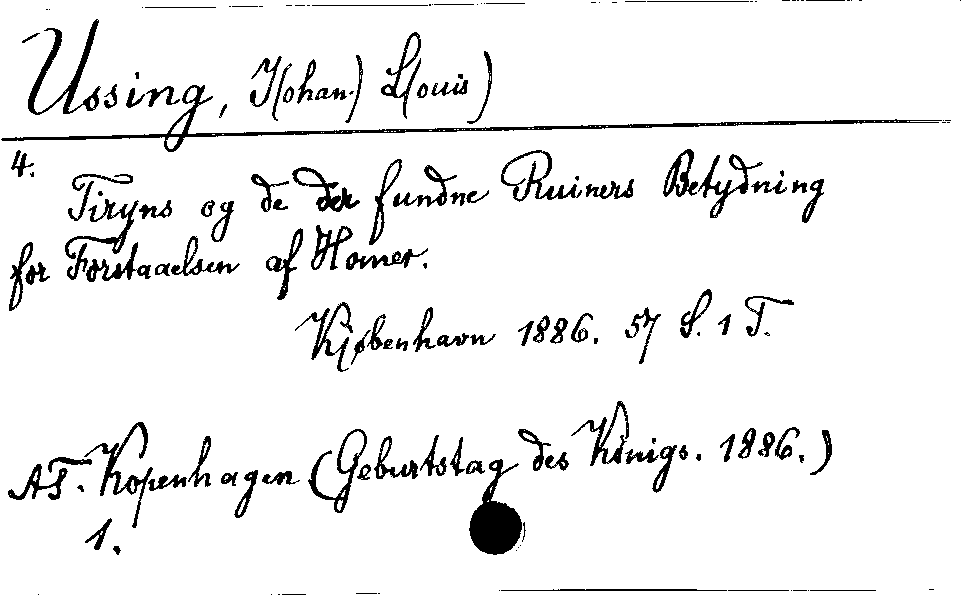 Ussing, J(ohan.) L(ouis)
4.
Tiryns og de der fundne Ruiners Betydning
for Forstaaelsen af Homer.
Kjøbenhavn 1886. 57 S. 1 T.
AF. Kopenhagen (Geburtstag des Königs. 1886.)
1.